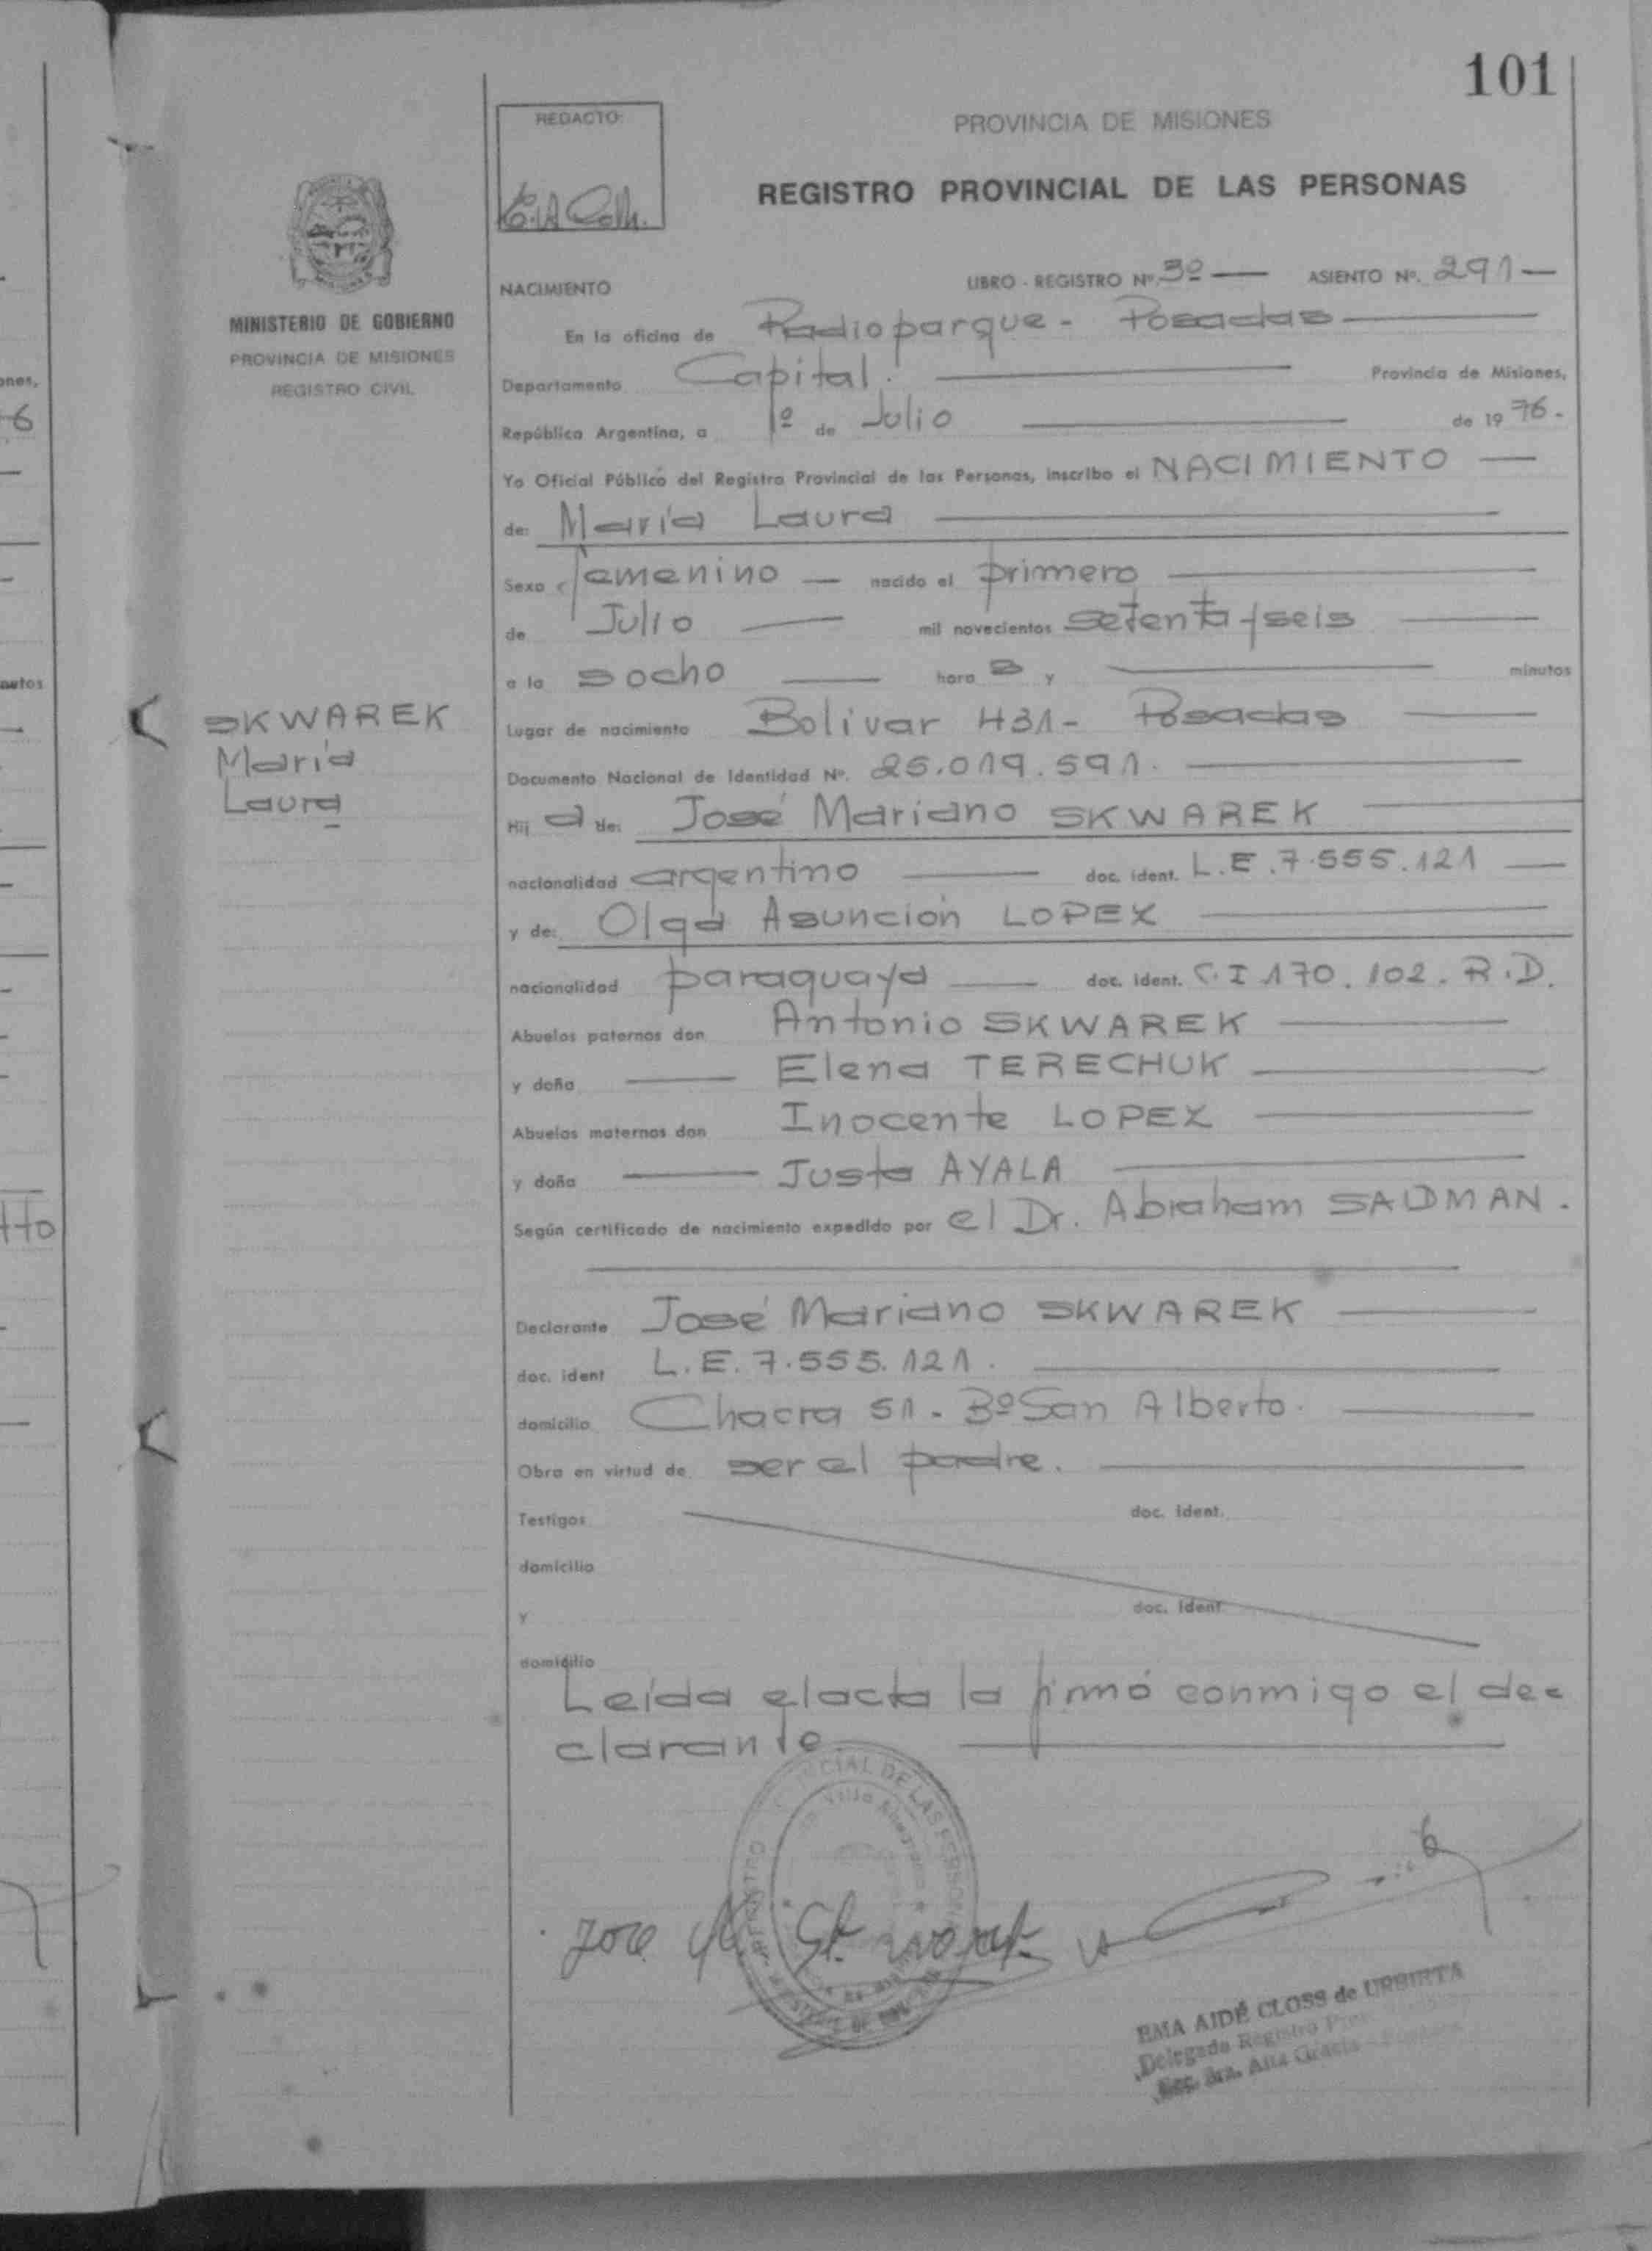 101
REDACTO:
PROVINCIA DE MISIONES
REGISTRO PROVINCIAL DE LAS PERSONAS
MINISTERIO DE GOBIERNO
PROVINCIA DE MISIONES
REGISTRO CIVIL
NACIMIENTO LIBRO - REGISTRO Nº. 3º — ASIENTO Nº. 291 —
En la oficina de Radioparque - Posadas
Departamento Capital. Provincia de Misiones,
República Argentina, a 1º de Julio de 19 76.
Yo Oficial Público del Registro Provincial de las Personas, inscribo el NACIMIENTO
de: María Laura
Sexo femenino — nacido el primero
de Julio mil novecientos setenta y seis
a la s ocho hora s y minutos
SKWAREK
María
Laura
Lugar de nacimiento Bolivar 431 - Posadas
Documento Nacional de Identidad Nº. 25.019.591.
Hij a de: José Mariano SKWAREK
nacionalidad argentino doc. ident. L.E. 7.555.121
y de: Olga Asunción LOPEZ
nacionalidad paraguaya doc. ident. C.I 170.102. R.D.
Abuelos paternos don Antonio SKWAREK
y doña Elena TERECHUK
Abuelos maternos don Inocente LOPEZ
y doña Justa AYALA
Según certificado de nacimiento expedido por el Dr. Abraham SAIDMAN.
Declarante José Mariano SKWAREK
doc. ident L.E. 7.555.121.
domicilio Chacra 51 - Bº San Alberto.
Obra en virtud de ser el padre.
Testigos doc. ident.
domicilio
y doc. ident
domicilio
Leída el acta la firmó conmigo el de=
clarante
EMA AIDÉ CLOSS de URBIETA
Delegada Registro